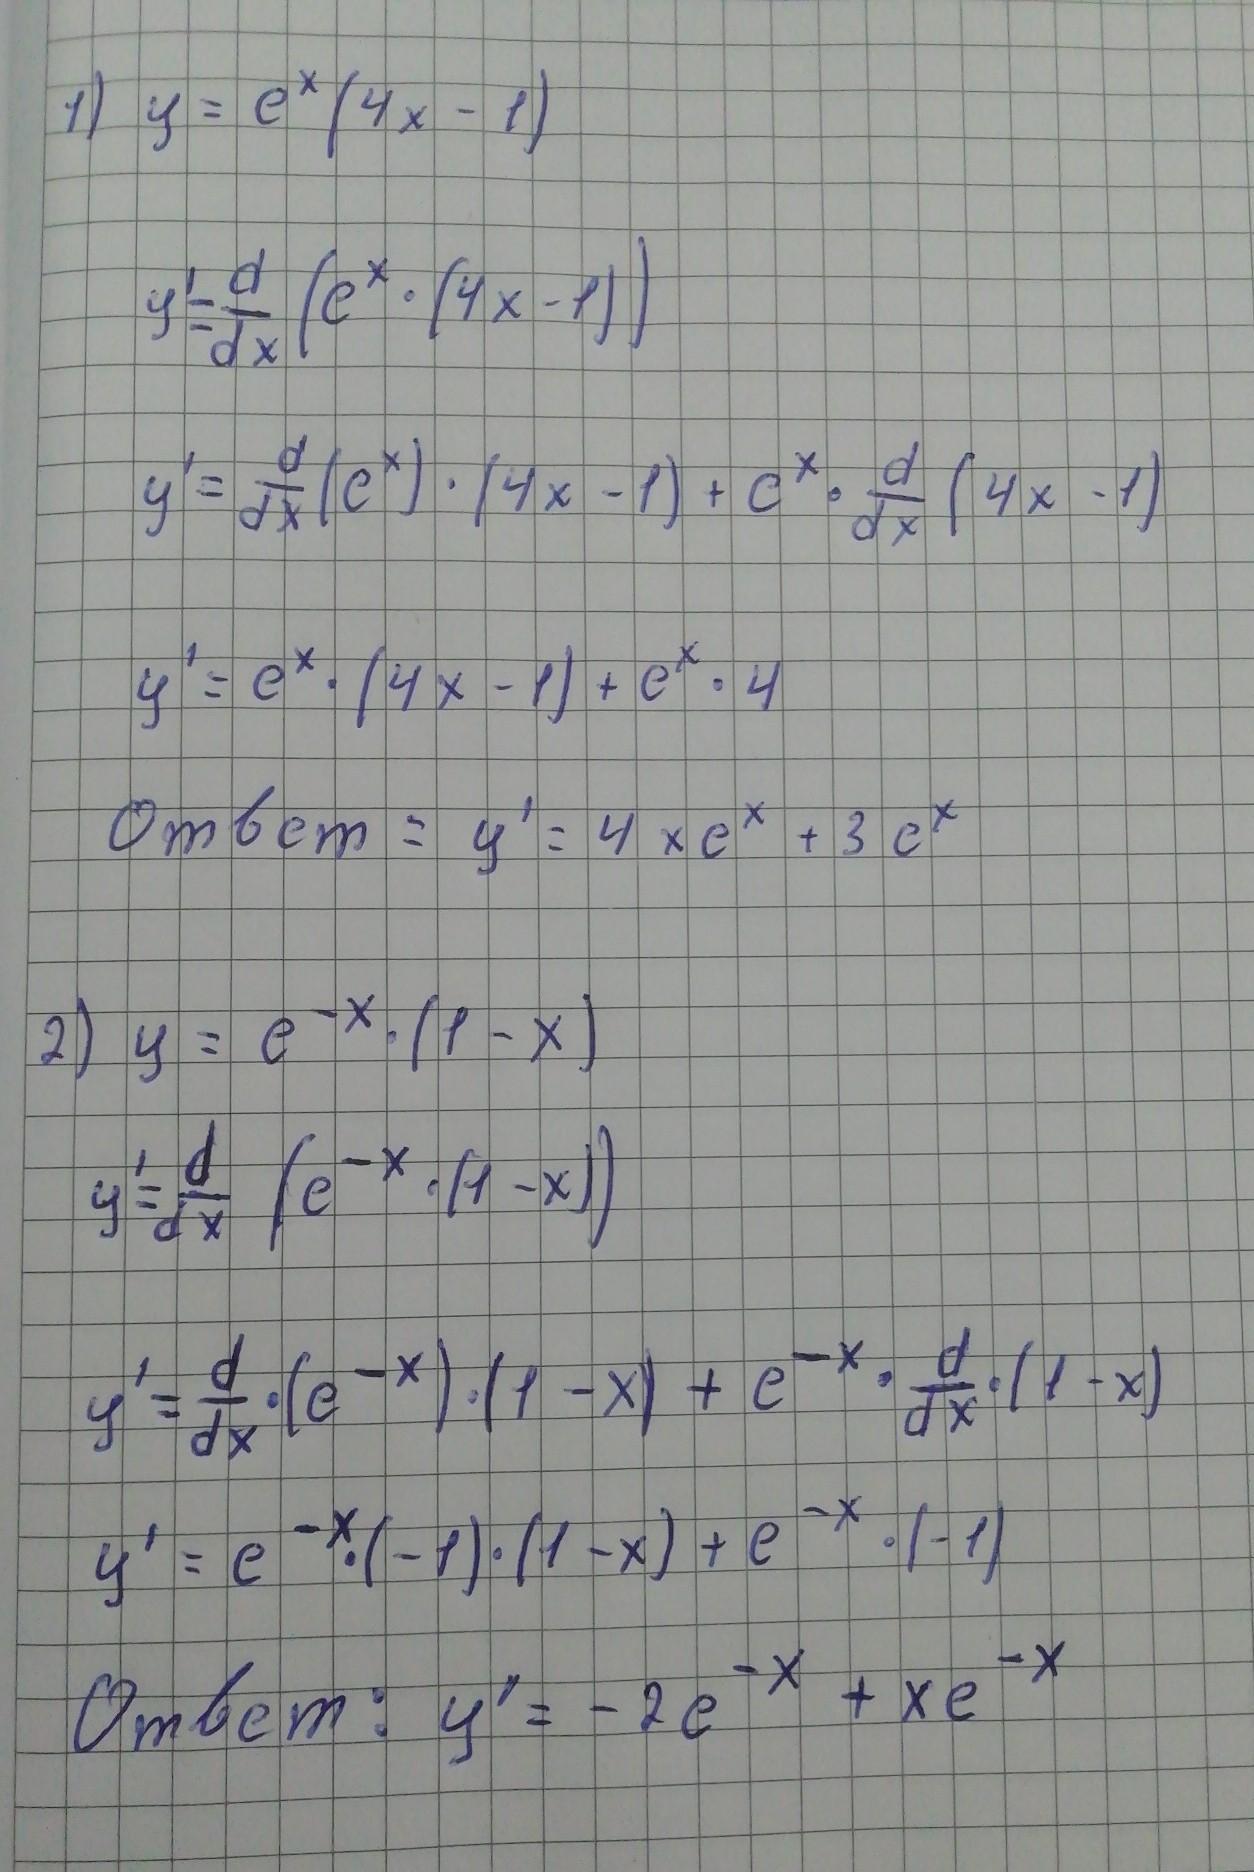 1) y = e^x (4x - 1)
y' = d/dx (e^x · (4x - 1))
y' = d/dx (e^x) · (4x - 1) + e^x · d/dx (4x - 1)
y' = e^x · (4x - 1) + e^x · 4
Ответ = y' = 4xe^x + 3e^x
2) y = e^-x · (1 - x)
y' = d/dx (e^-x · (1 - x))
y' = d/dx · (e^-x) · (1 - x) + e^-x · d/dx · (1 - x)
y' = e^-x · (-1) · (1 - x) + e^-x · (-1)
Ответ: y' = -2e^-x + xe^-x